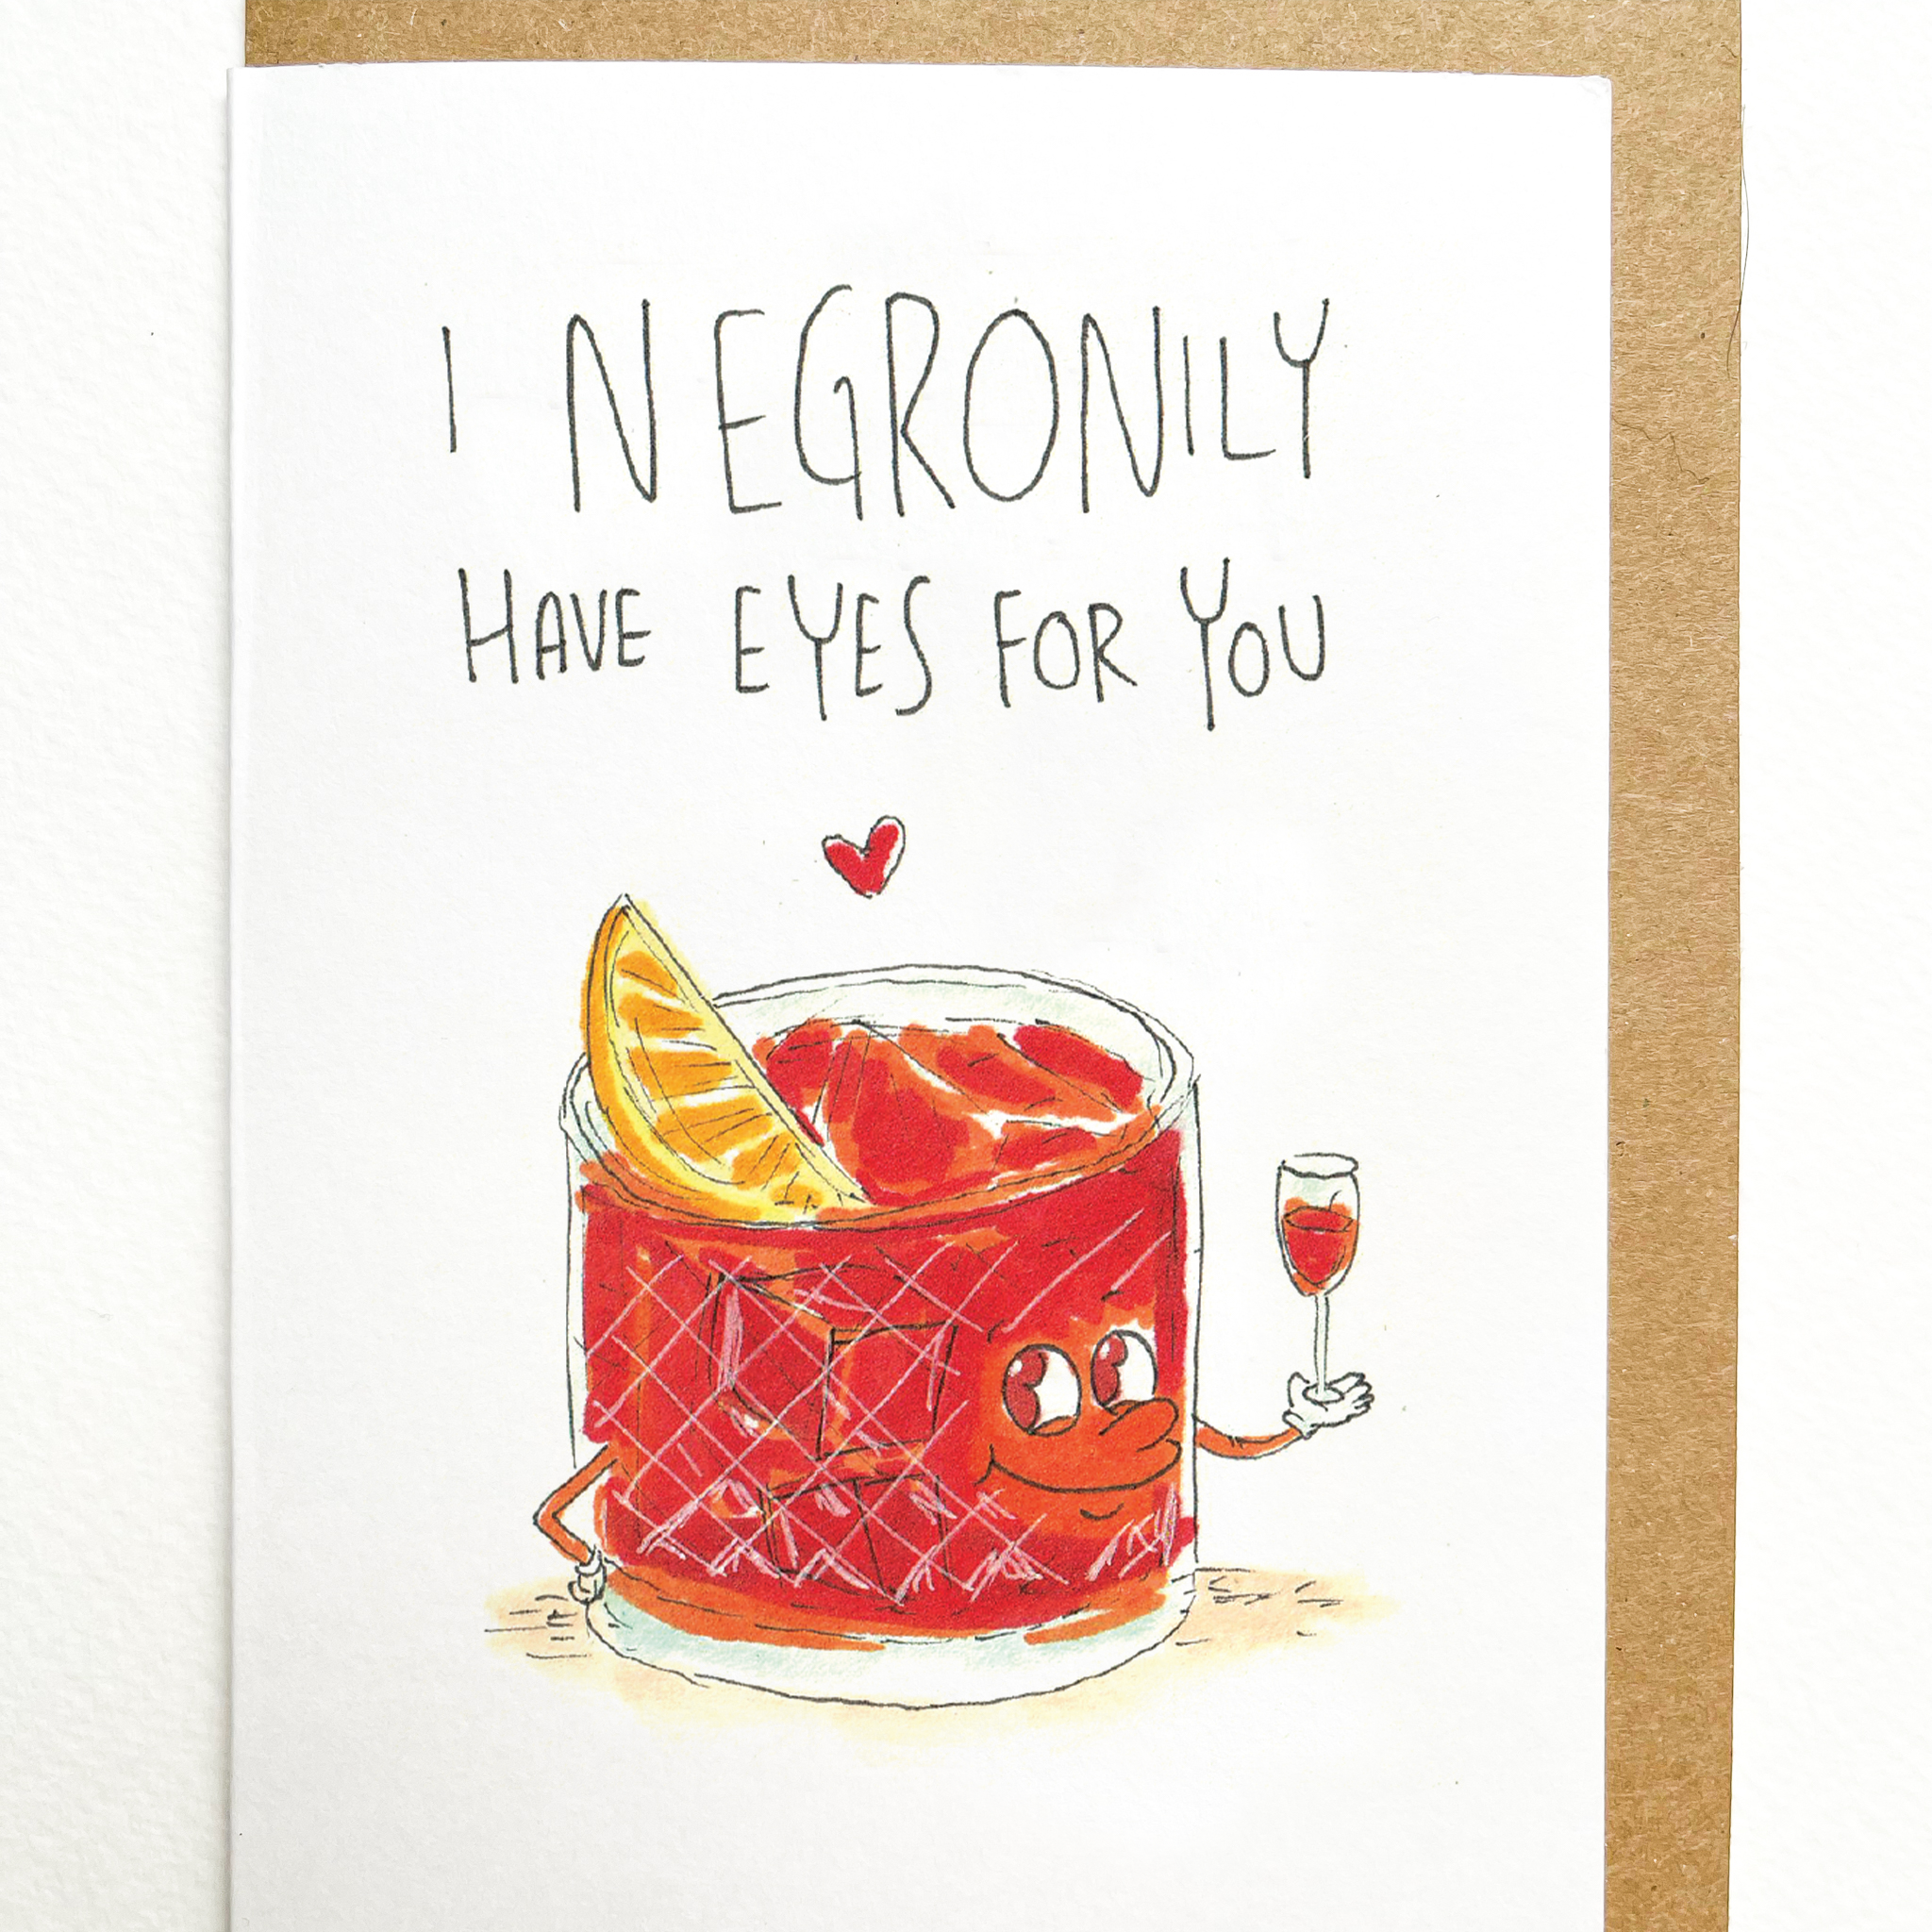 I NEGRONILY
HAVE EYES FOR YOU